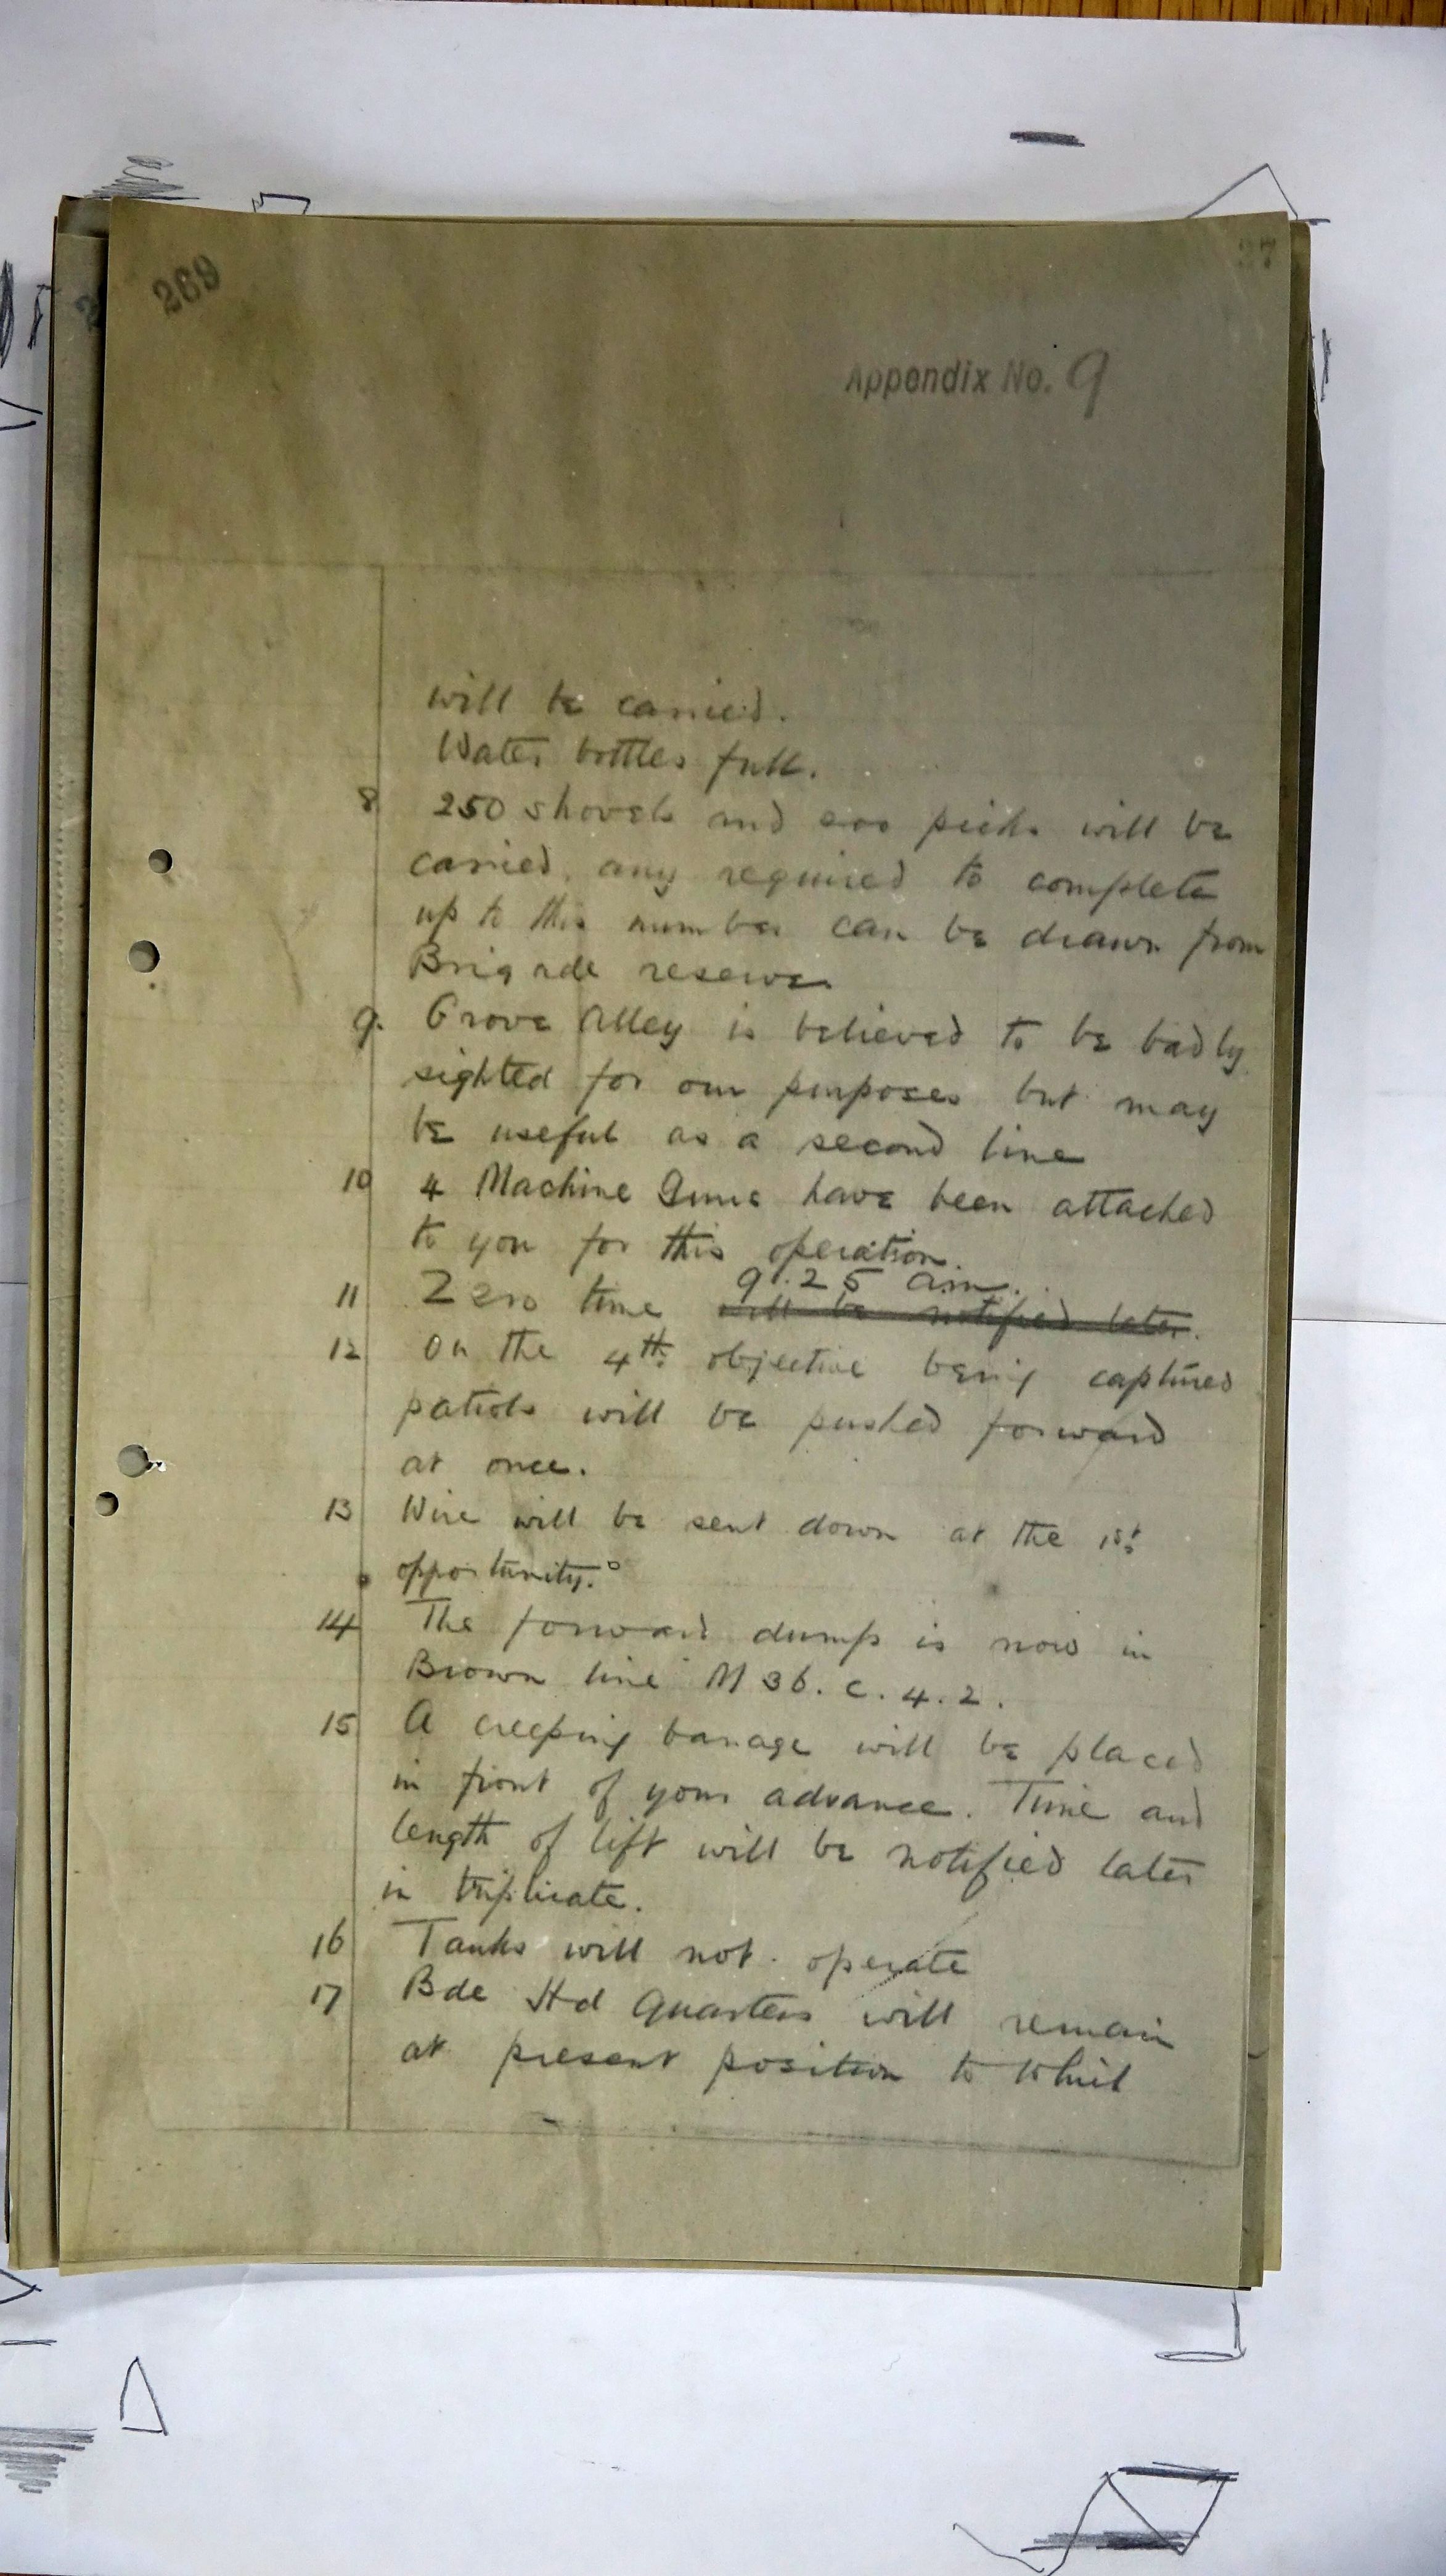 269
27
Appendix No. 9
will be carried.
Water bottles full.
8 250 shovels and 200 picks will be
carried, any required to complete
up to this number can be drawn from
Brigade reserve
9. Grove Alley is believed to be badly
sighted for our purposes but may
be useful as a second line
10 4 Machine Guns have been attached
to you for this operation.
9.25 am.
11 Zero time will be notified later.
12 On the 4th objective being captured
patrols will be pushed forward
at once.
13 Wire will be sent down at the 1st
opportunity.
14 The forward dump is now in
Brown line M 36. c. 4. 2.
15 A creeping barrage will be placed
in front of your advance. Time and
length of lift will be notified later
in triplicate.
16 Tanks will not operate
17 Bde Hd Quarters will remain
at present position to which